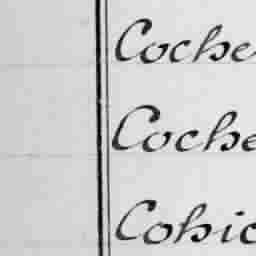 Coche
Coche
Cohic